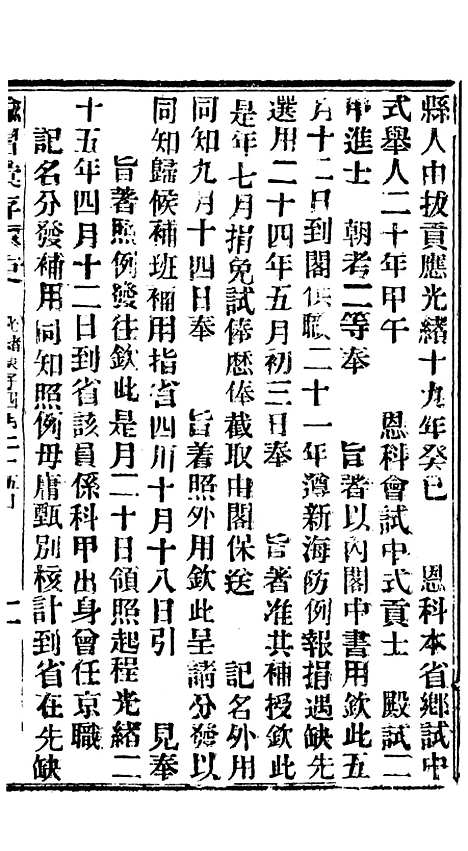 縣人由拔貢應光緒十九年癸巳　恩科本省鄉試中
式舉人二十年甲午　恩科會試中式貢士　殿試二
甲進士　朝考二等奉　旨著以內閣中書用欽此五
月十二日到閣供職二十一年遵新海防例報捐遇缺先
選用二十四年五月初三日奉　旨著准其補授欽此
是年七月捐免試俸歷俸截取由閣保送　記名外用
同知九月十四日奉　旨着照外用欽此呈請分發以
同知歸候補班補用指省四川十月十八日引　見奉
旨著照例發往欽此是月二十日領照起程光緒二
十五年四月十二日到省該員係科甲出身曾任京職
記名分發補用同知照例毋庸甄別核計到省在先缺